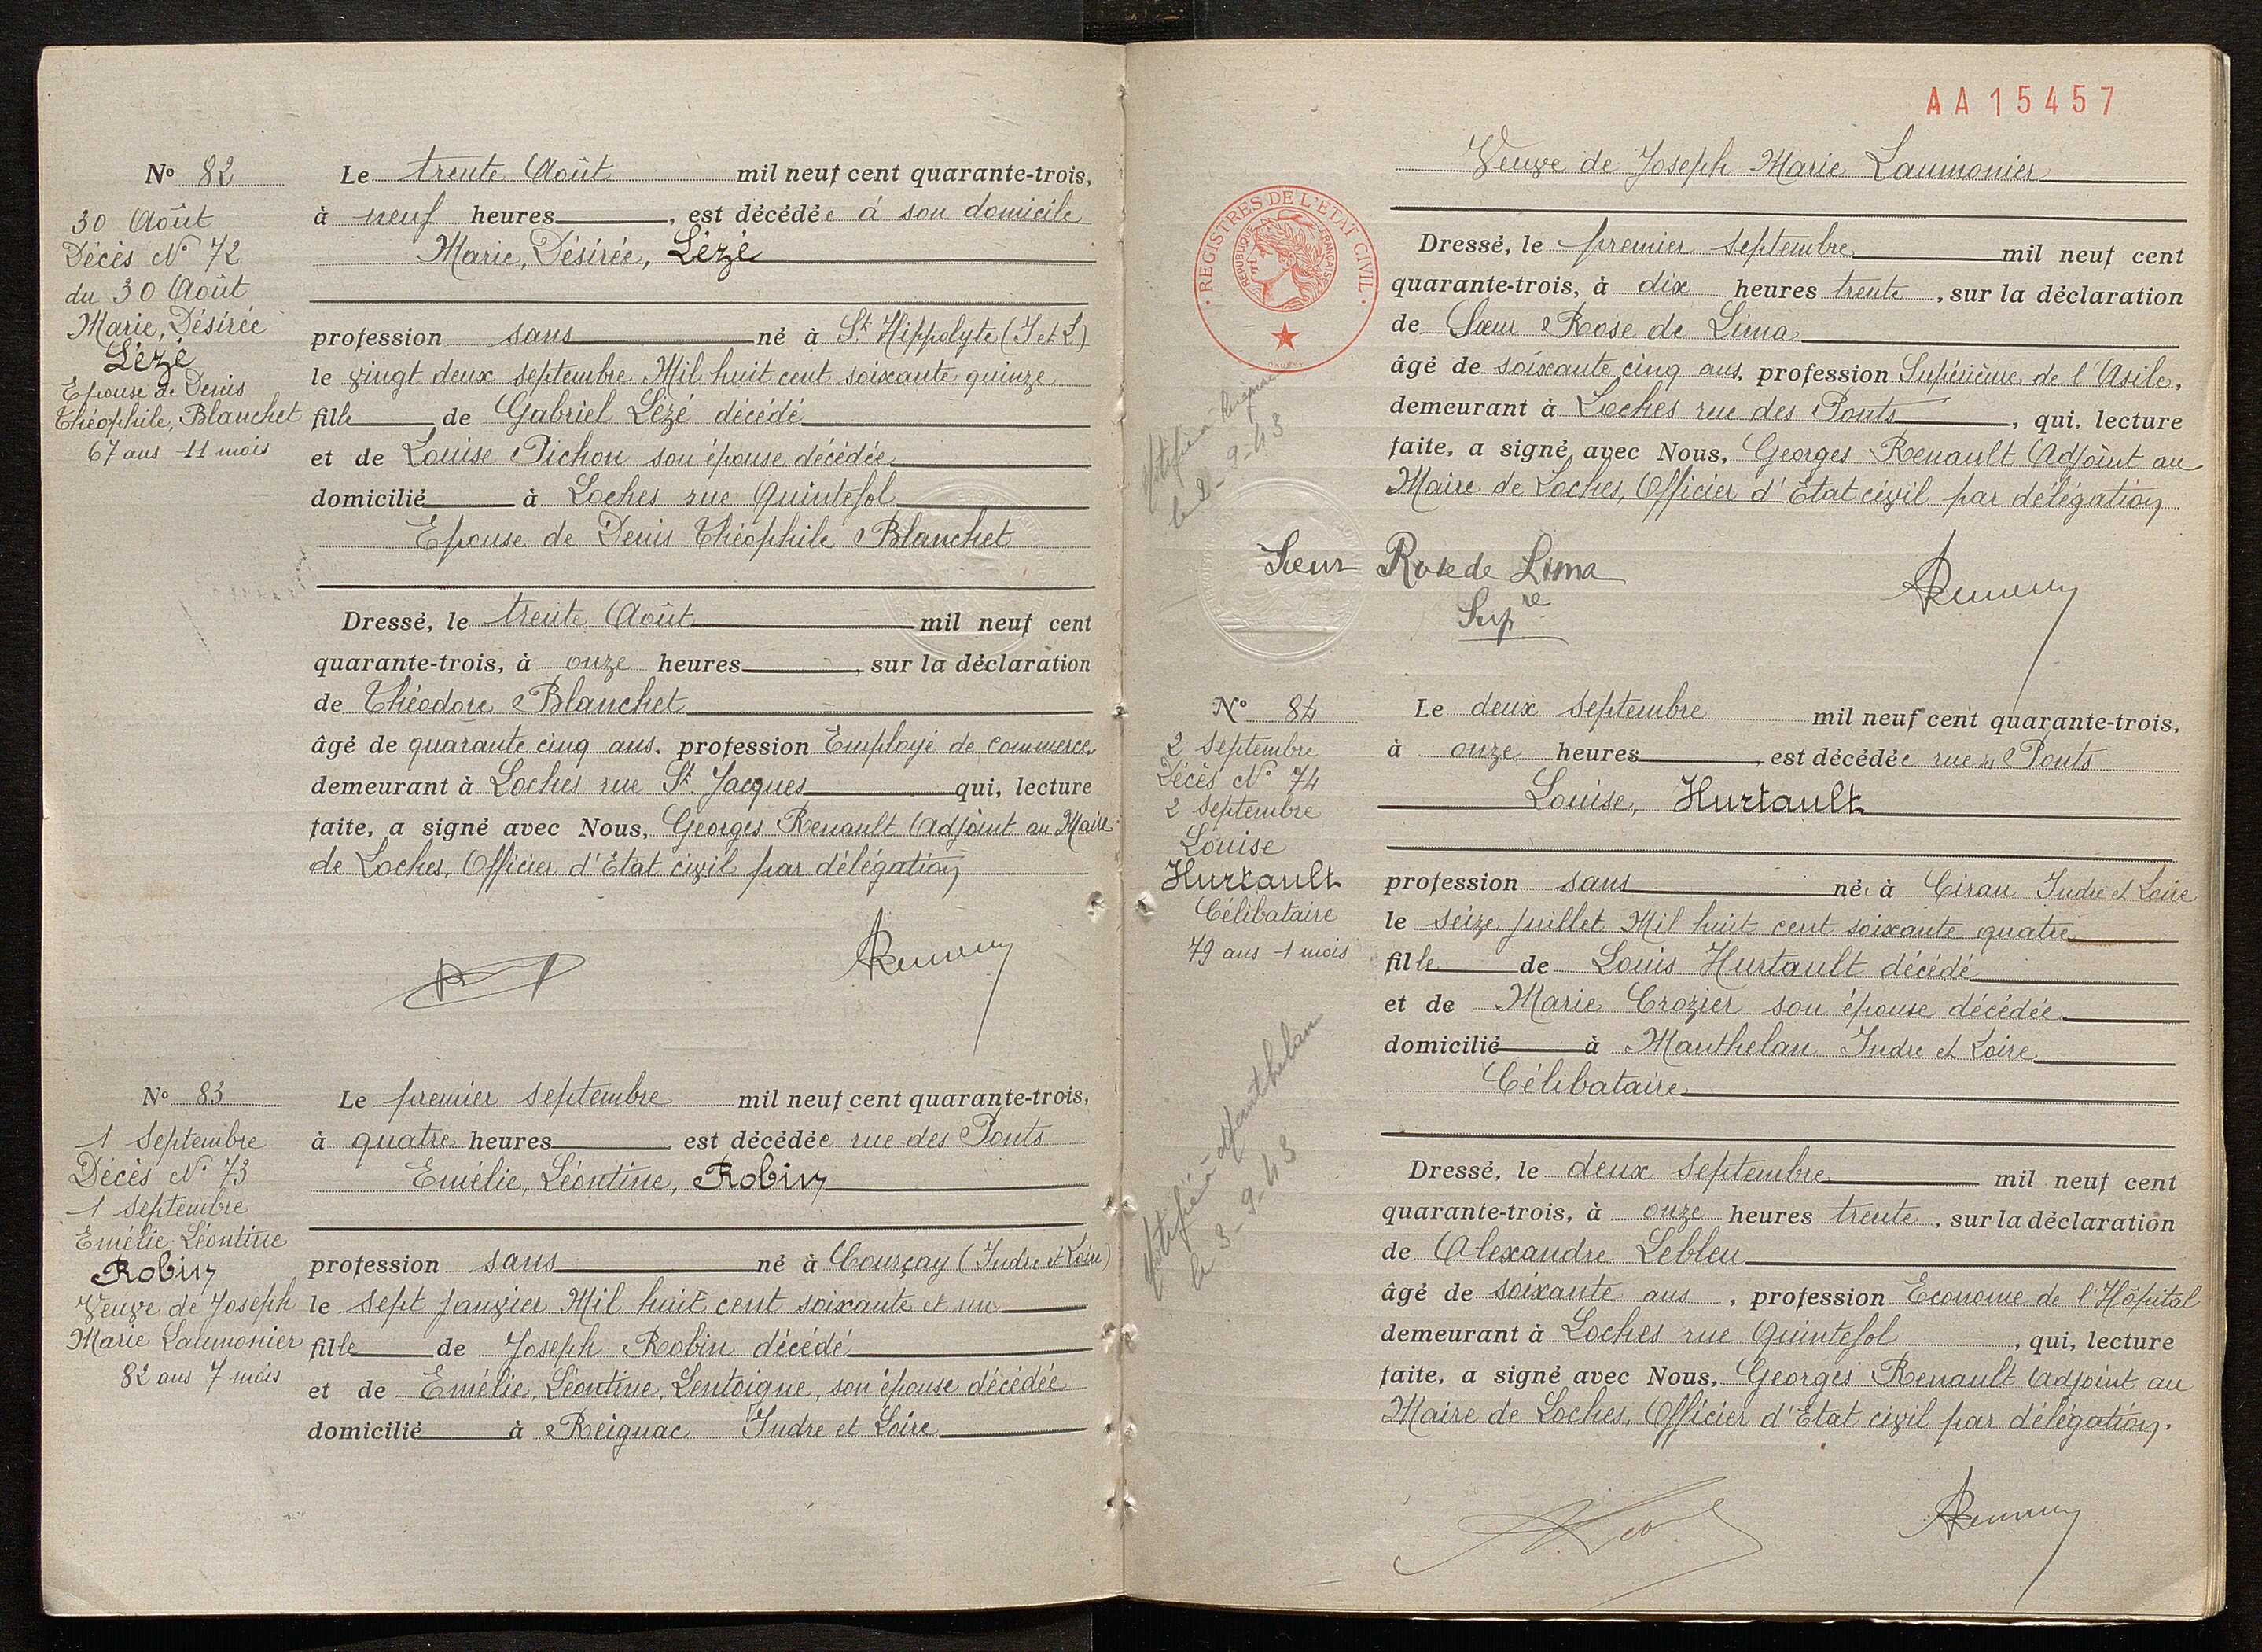 N° 82
30 Août
Décès N° 72
du 30 Août
Marie, Désirée
Lézé
Epouse de Denis
Théophile, Blanchet
67 ans 11 mois
Le trente Août mil neuf cent quarante-trois,
à neuf heures, est décédée à son domicile
Marie, Désirée, Lézé
profession sans né à St Hippolyte (I et L)
le vingt deux septembre Mil huit cent soixante quinze
fille de Gabriel Lézé décédé
et de Louise Pichon son épouse décédée
domicilié à Loches rue Quintefol
Epouse de Denis Théophile Blanchet
Dressé, le trente Août mil neuf cent
quarante-trois, à onze heures, sur la déclaration
de Théodore Blanchet
âgé de quarante cinq ans, profession Employé de commerce
demeurant à Loches rue St Jacques qui, lecture
faite, a signé avec Nous, Georges Renault Adjoint au Maire
de Loches, Officier d'Etat civil par délégation
N° 83
1 Septembre
Décès N° 73
1 Septembre
Emélie Léontine
Robin
Veuve de Joseph
Marie Laumonier
82 ans 7 mois
Le premier septembre mil neuf cent quarante-trois,
à quatre heures est décédée rue des Ponts
Emélie, Léontine, Robin
profession sans né à Courçay (Indre et Loire)
le sept janvier Mil huit cent soixante et un
fille de Joseph Robin décédé
et de Emélie, Léontine, Lentoigne, son épouse décédée
domicilié à Reignac Indre et Loire
AA 15457
Veuve de Joseph Marie Laumonier
REGISTRES DE L'ETAT CIVIL
REPUBLIQUE FRANÇAISE
Dressé, le premier septembre mil neuf cent
quarante-trois, à dix heures trente, sur la déclaration
de Sœur Rose de Lima
âgé de soixante cinq ans, profession Supérieure de l'Asile,
demeurant à Loches rue des Ponts, qui, lecture
faite, a signé avec Nous, Georges Renault Adjoint au
Maire de Loches, Officier d'Etat civil par délégation
Notifié à Reignac
le 2-9-43
Sœur Rose de Lima
Supre
N° 84
2 Septembre
Décès N° 74
2 Septembre
Louise
Hurtault
Célibataire
79 ans 1 mois
Le deux septembre mil neuf cent quarante-trois,
à onze heures est décédée rue des Ponts
Louise, Hurtault
profession sans née à Ciran Indre et Loire
le seize juillet Mil huit cent soixante quatre
fille de Louis Hurtault décédé
et de Marie Crozier son épouse décédée
domicilié à Manthelan Indre et Loire
Célibataire
Notifié à Manthelan
le 3-9-43
Dressé, le deux septembre mil neuf cent
quarante-trois, à onze heures trente, sur la déclaration
de Alexandre Lebleu
âgé de soixante ans, profession Econome de l'Hôpital
demeurant à Loches rue Quintefol, qui, lecture
faite, a signé avec Nous, Georges Renault Adjoint au
Maire de Loches, Officier d'Etat civil par délégation.